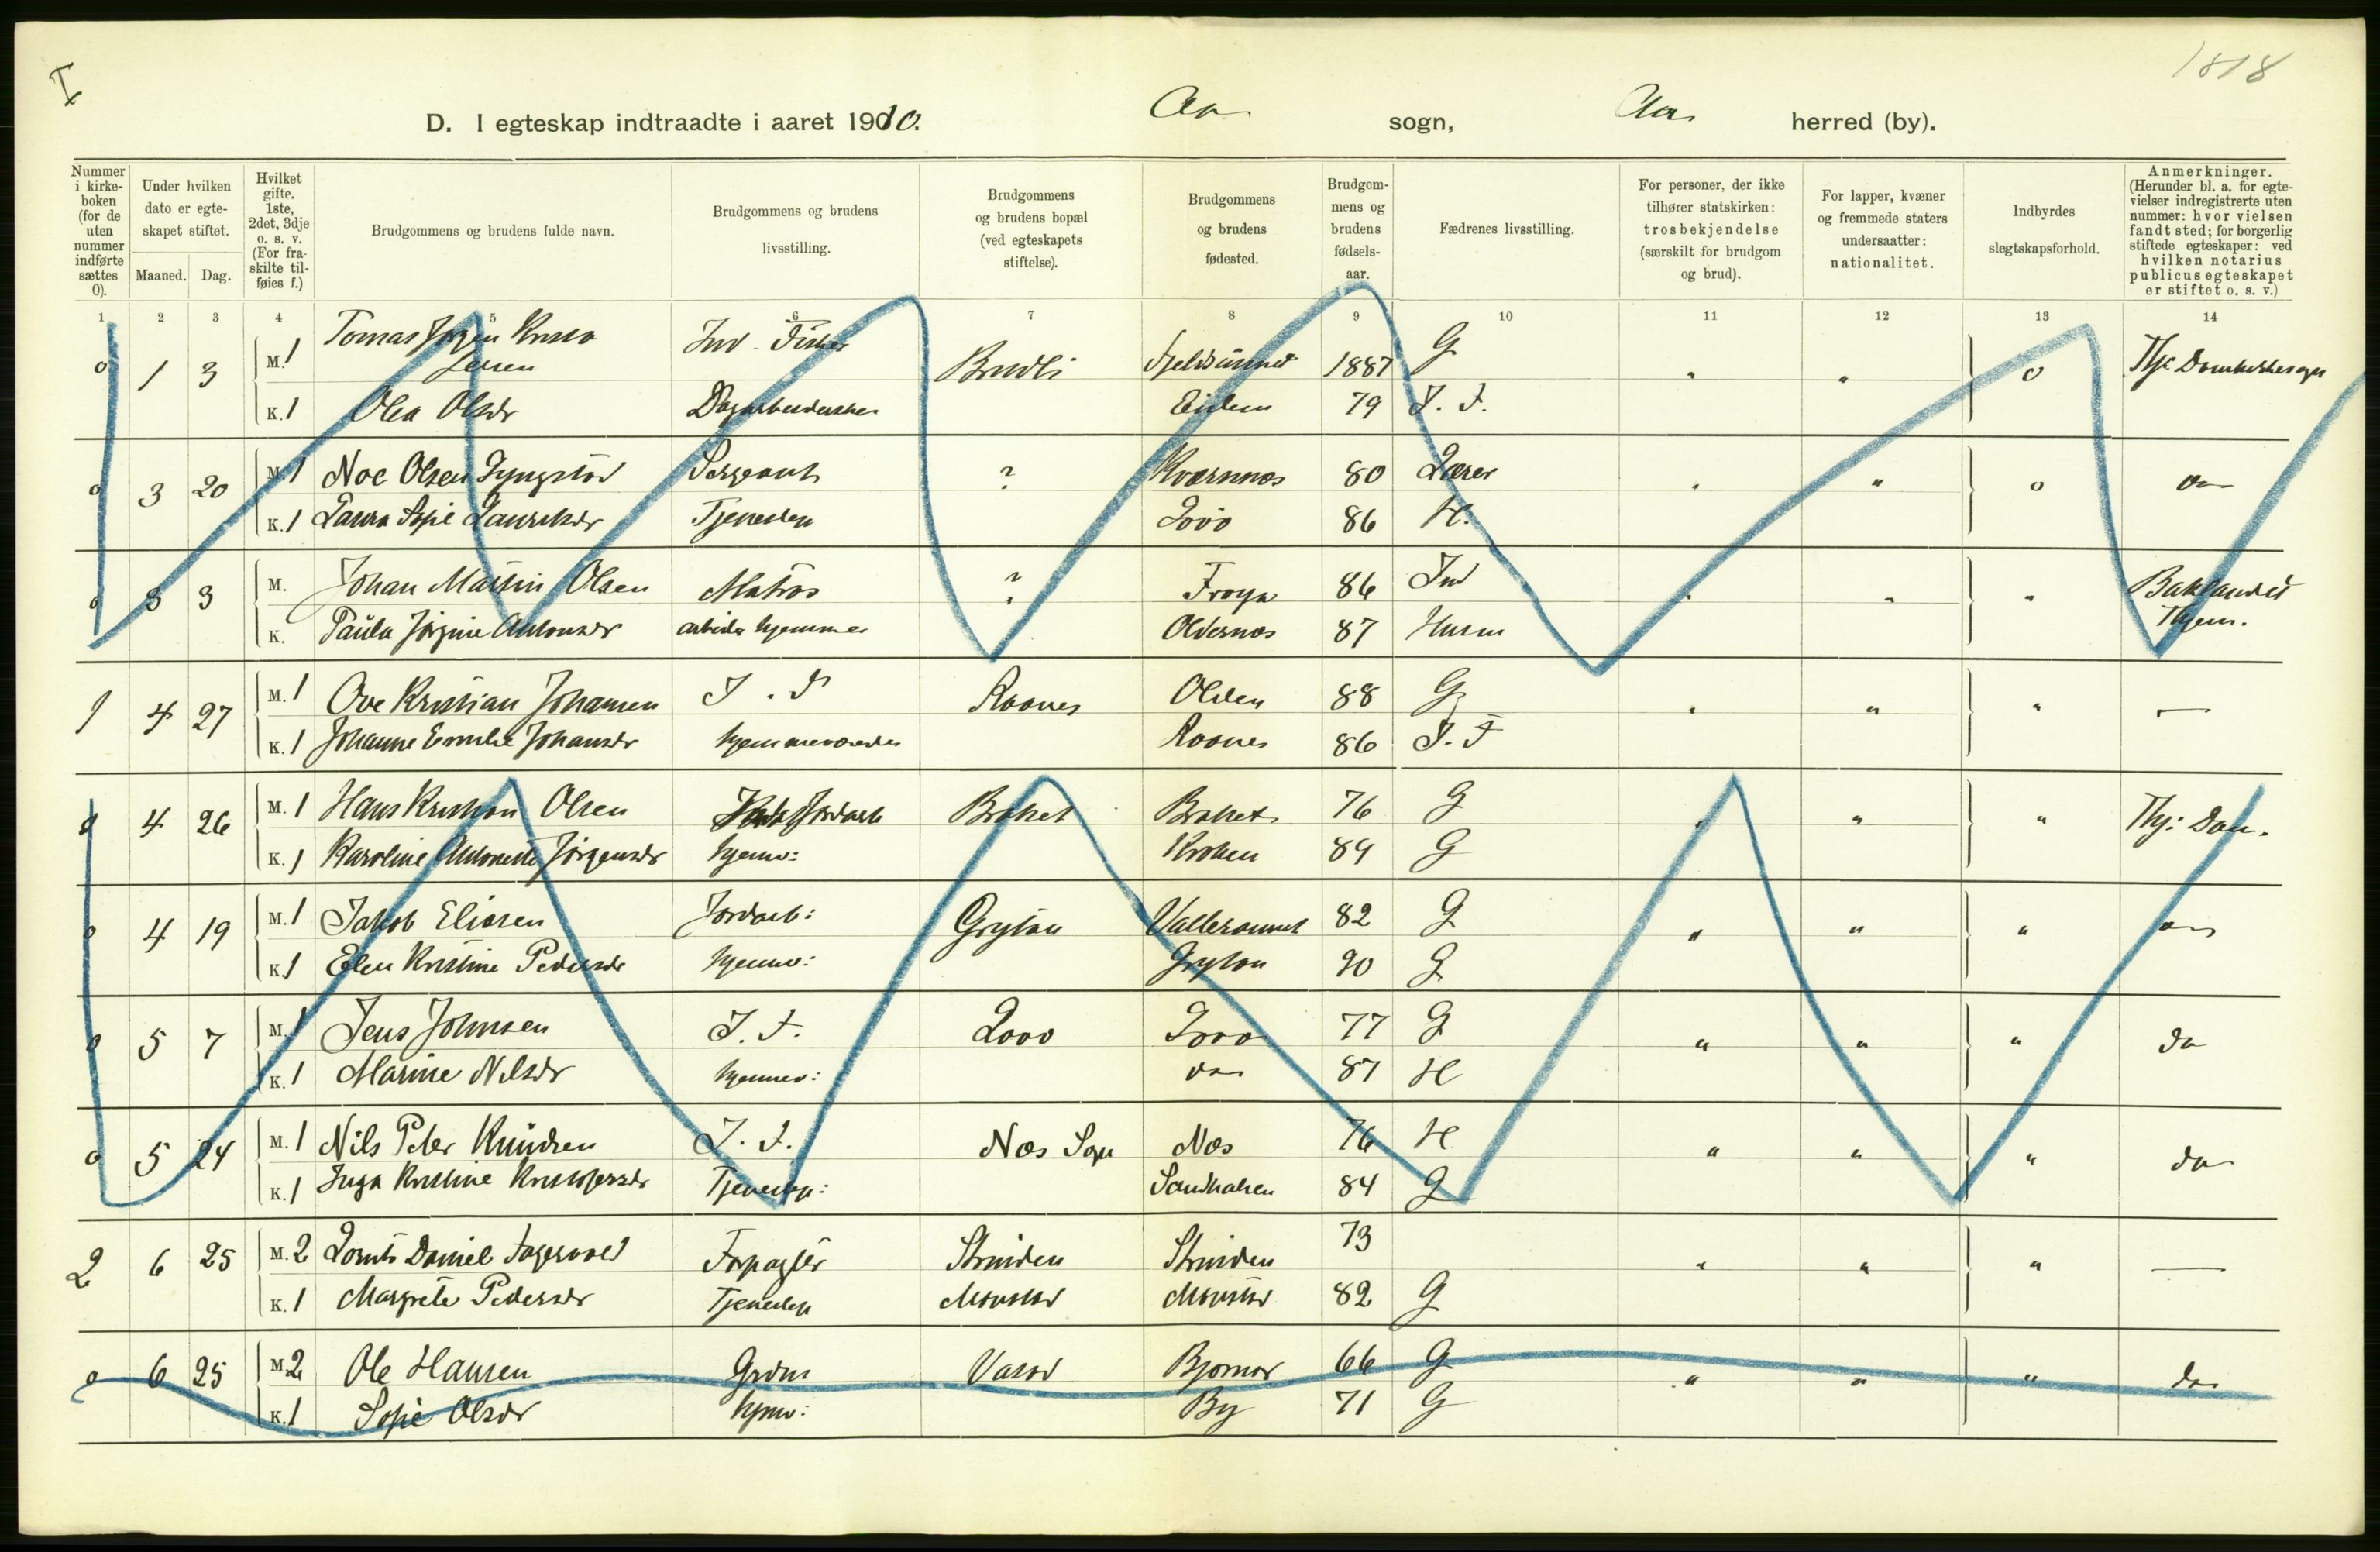 I
1818
D. I egteskap indtraadte i aaret 1910. Aa sogn, Aa herred (by).
Nummer i kirke-boken (for de uten nummer indførte sættes 0).
Under hvilken dato er egte-skapet stiftet.
Maaned. Dag.
Hvilket gifte. 1ste, 2det, 3dje o. s. v. (For fra-skilte til-føies f.)
Brudgommens og brudens fulde navn.
Brudgommens og brudens livsstilling.
Brudgommens og brudens bopæl (ved egteskapets stiftelse).
Brudgommens og brudens fødested.
Brudgom-mens og brudens fødsels-aar.
Fædrenes livsstilling.
For personer, der ikke tilhører statskirken: trosbekjendelse (særskilt for brudgom og brud).
For lapper, kvæner og fremmede staters undersaatter: nationalitet.
Indbyrdes slegtskapsforhold.
Anmerkninger. (Herunder bl. a. for egte-vielser indregistrerte uten nummer: hvor vielsen fandt sted; for borgerlig stiftede egteskaper: ved hvilken notarius publicus egteskapet er stiftet o. s. v.)
1 2 3 4 5 6 7 8 9 10 11 12 13 14
0 1 3 M. 1 Tomas Jørgen Kristo Ind. Fisker 1887 G " " 0
K. 1 Olea Olsdr 79 I. F.
0 3 20 M. 1 Noe Olsen Lyngstad Sergeant ? Kværnnæs 80 Lærer " " 0 do
K. 1 Laura Sofie Lauritsdr Tjenestep 86 H.
0 3 3 M. Johan Martin Olsen Matros ? Frøya 86 Ind " " " Baklandet
K. Paula Jørgine Antonsdr arbeider hjemme Oldernæs 87 Husm Thjem.
1 4 27 M. 1 Ove Kristian Johansen I. F Olden 88 G " " " —
K. 1 Johanne Emilie Johansdr hjemmeværende 86 I. F
0 4 26 M. 1 Hans Kristian Olsen Jordarb 76 G " " "
K. 1 Karoline Antonette Jørgensdr hjemv: Kroken 89 G
0 4 19 M. 1 Jakob Eliasen Jordarb: Grytan Vallersund 82 G " " " do
K. 1 Elen Kristine Pedersdr hjemv: Grytan 90 G
0 5 7 M. 1 Jens Johnsen I. F. 77 G " " " do
K. 1 Marine Nilsdr hjemmev: do 87 H
0 5 24 M. 1 Nils Peter Knudsen I. F. Næs Sogn Næs 76 H " " " do
K. 1 Inga Kristine Kristofersdr Tjenestep: Sandhalsen 84 G
2 6 25 M. 2 Lorents Daniel Fagervold Forpagter Strinden Strinden 73 " " " —
K. 1 Margrete Pedersdr Tjenestep Monstad Monstad 82 G
0 6 25 M. 2 Ole Hansen Grdm Bjørnør 66 G " " " do
K. 1 Sofie Olsdr hjmv: By 71 G